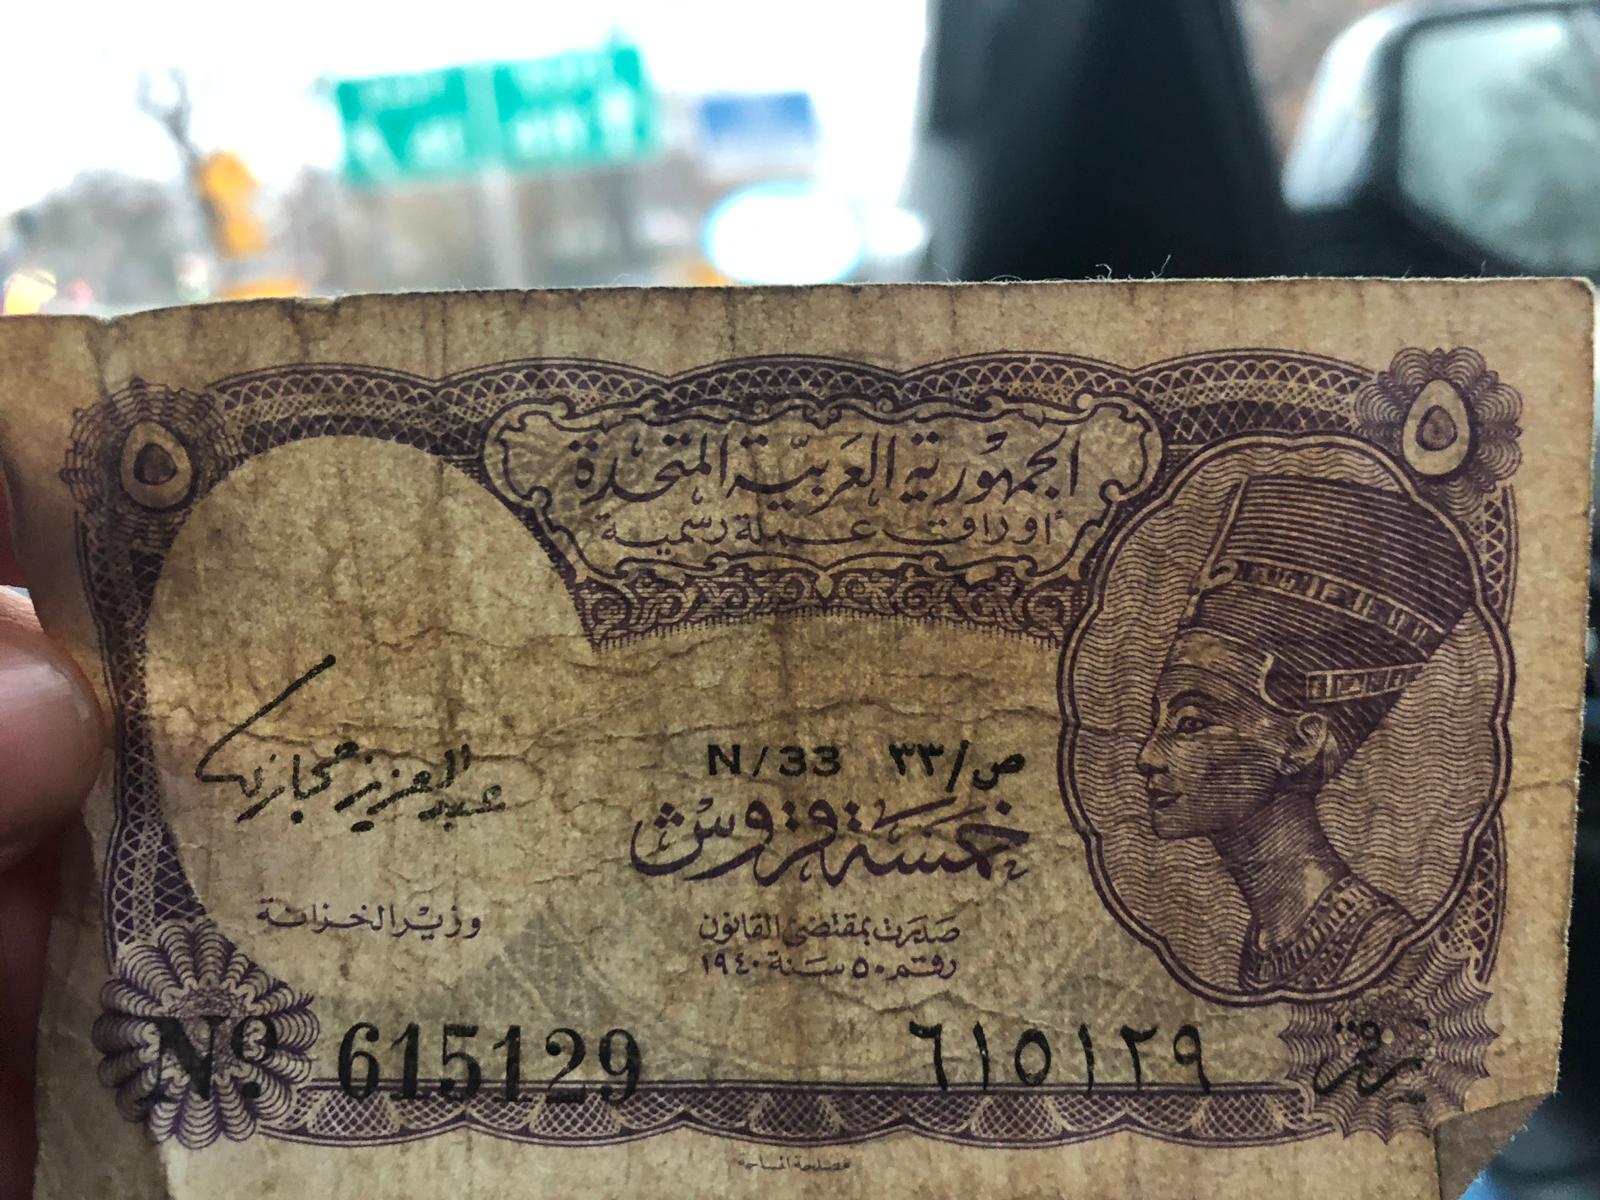 ٥
٥
الجمهورية العربية المتحدة
أوراق عملة رسمية
N/33 ص/٣٣
خمسة قروش
عبد العزيز حجازي
وزير الخزانة
صدرت بمقتضى القانون
رقم ٥٠ سنة ١٩٤٠
Nº 615129 ٦١٥١٢٩ رقم
مصلحة المساحة